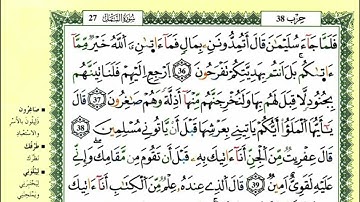 حزب 38
سورة النمل
27
فَلَمَّا جَآءَ سُلَيْمَٰنَ قَالَ أَتُمِدُّونَنِ بِمَالٍ فَمَآ ءَاتَىٰنِۦَ ٱللَّهُ خَيْرٌ مِّمَّآ
ءَاتَىٰكُم بَلْ أَنتُم بِهَدِيَّتِكُمْ تَفْرَحُونَ 36 ٱرْجِعْ إِلَيْهِمْ فَلَنَأْتِيَنَّهُم
بِجُنُودٍ لَّا قِبَلَ لَهُم بِهَا وَلَنُخْرِجَنَّهُم مِّنْهَآ أَذِلَّةً وَهُمْ صَٰغِرُونَ 37
قَالَ يَٰٓأَيُّهَا ٱلْمَلَؤُا۟ أَيُّكُمْ يَأْتِينِى بِعَرْشِهَا قَبْلَ أَن يَأْتُونِى مُسْلِمِينَ
38 قَالَ عِفْرِيتٌ مِّنَ ٱلْجِنِّ أَنَا۠ ءَاتِيكَ بِهِۦ قَبْلَ أَن تَقُومَ مِن مَّقَامِكَ وَإِنِّى
عَلَيْهِ لَقَوِىٌّ أَمِينٌ 39 قَالَ ٱلَّذِى عِندَهُۥ عِلْمٌ مِّنَ ٱلْكِتَٰبِ أَنَا۠ ءَاتِيكَ
صاغرون
ذليلون بالأسر
والاستعباد
طرفك
نظرك
ليبلوني
ليختبرني
ويمتحنني